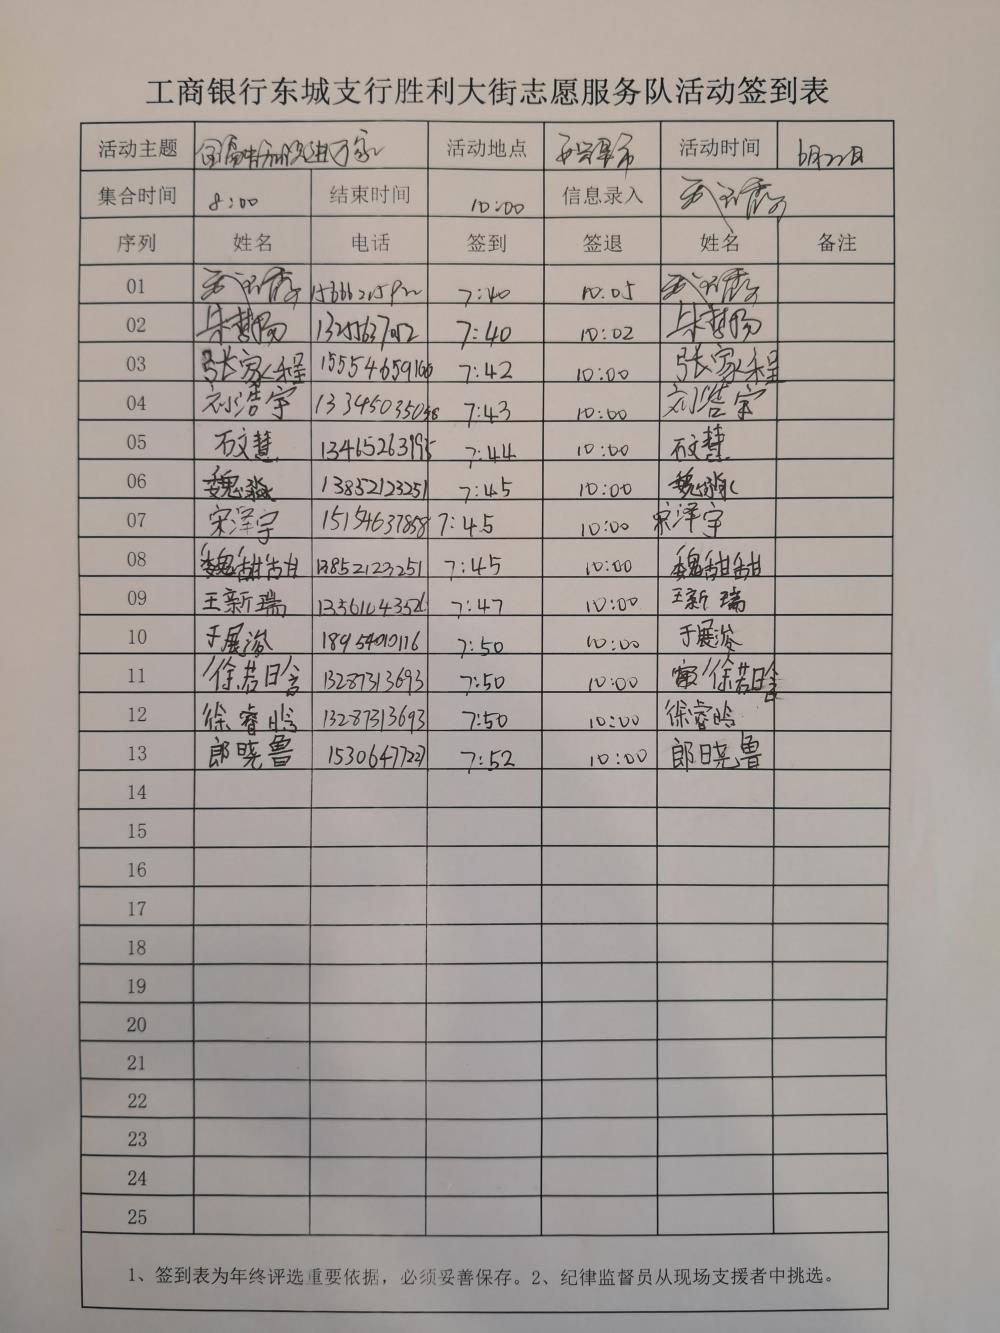 工商银行东城支行胜利大街志愿服务队活动签到表
活动主题 金融知识进万家 活动地点 活动时间 6月22日
集合时间 8:00 结束时间 10:00 信息录入
序列 姓名 电话 签到 签退 姓名 备注
01 7:40 10:05
02 7:40 10:02
03 张家程 15554659166 7:42 10:00 张家程
04 刘浩宇 7:43 10:00 刘浩宇
05 石文慧 13465263995 7:44 10:00 石文慧
06 魏淼 13852123251 7:45 10:00 魏淼
07 宋泽宇 15154637858 7:45 10:00 宋泽宇
08 魏甜甜 13852123251 7:45 10:00 魏甜甜
09 王新瑞 7:47 10:00 王新瑞
10 于展浚 18954010116 7:50 10:00 于展浚
11 徐若晗 13287313693 7:50 10:00 徐若晗
12 徐睿晗 13287313693 7:50 10:00 徐睿晗
13 郎晓鲁 15306477227 7:52 10:00 郎晓鲁
14
15
16
17
18
19
20
21
22
23
24
25
1、签到表为年终评选重要依据，必须妥善保存。2、纪律监督员从现场支援者中挑选。